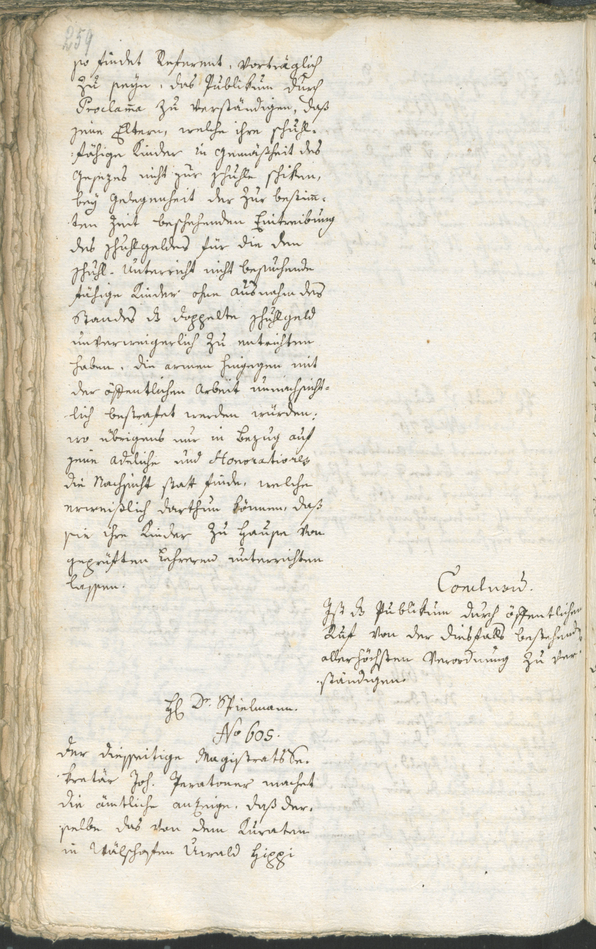 259
so findet Referent, vorträglich
zu seyn, das Publikum durch
Proclama zu verständigen, daß
jene Eltern, welche ihre schuhl-
fähige Kinder in Gemäßheit des
Gesezes nicht zur Schuhle schiken,
bey Gelegenheit der zur bestim-
ten Zeit beschehenden Eintreibung
des Schuhlgeldes für die den
Schuhl-Unterricht nicht besuchende
fähige Kinder ohne Ausnahm des
Standes ds doppelte Schuhlgeld
unverweigerlich zu entrichten
haben, die armen hingegen mit
der öffentlichen Arbeit unnachsicht-
lich bestrafet werden würden;
wo übrigens nur in Bezug auf
jene adeliche und Honoratiores
die Nachsicht statt finde, welche
erweißlich darthun können, daß
sie ihre Kinder zu Hause von
geprüften Lehreren unterrichten
lassen.
Conclusum.
Ist ds Publikum durch öffentlichen
Ruf von der diesfalls bestehenden
allerhöchsten Verordnung zu ver-
ständigen.
H Dr. Spielmann.
No 605.
Der diesseitige Magistrats Se-
kretär Joh. Peratoner machet
die ämtliche Anzeige, daß der-
selbe das von dem Kuraten
in Wälschofen Uwald Hippi